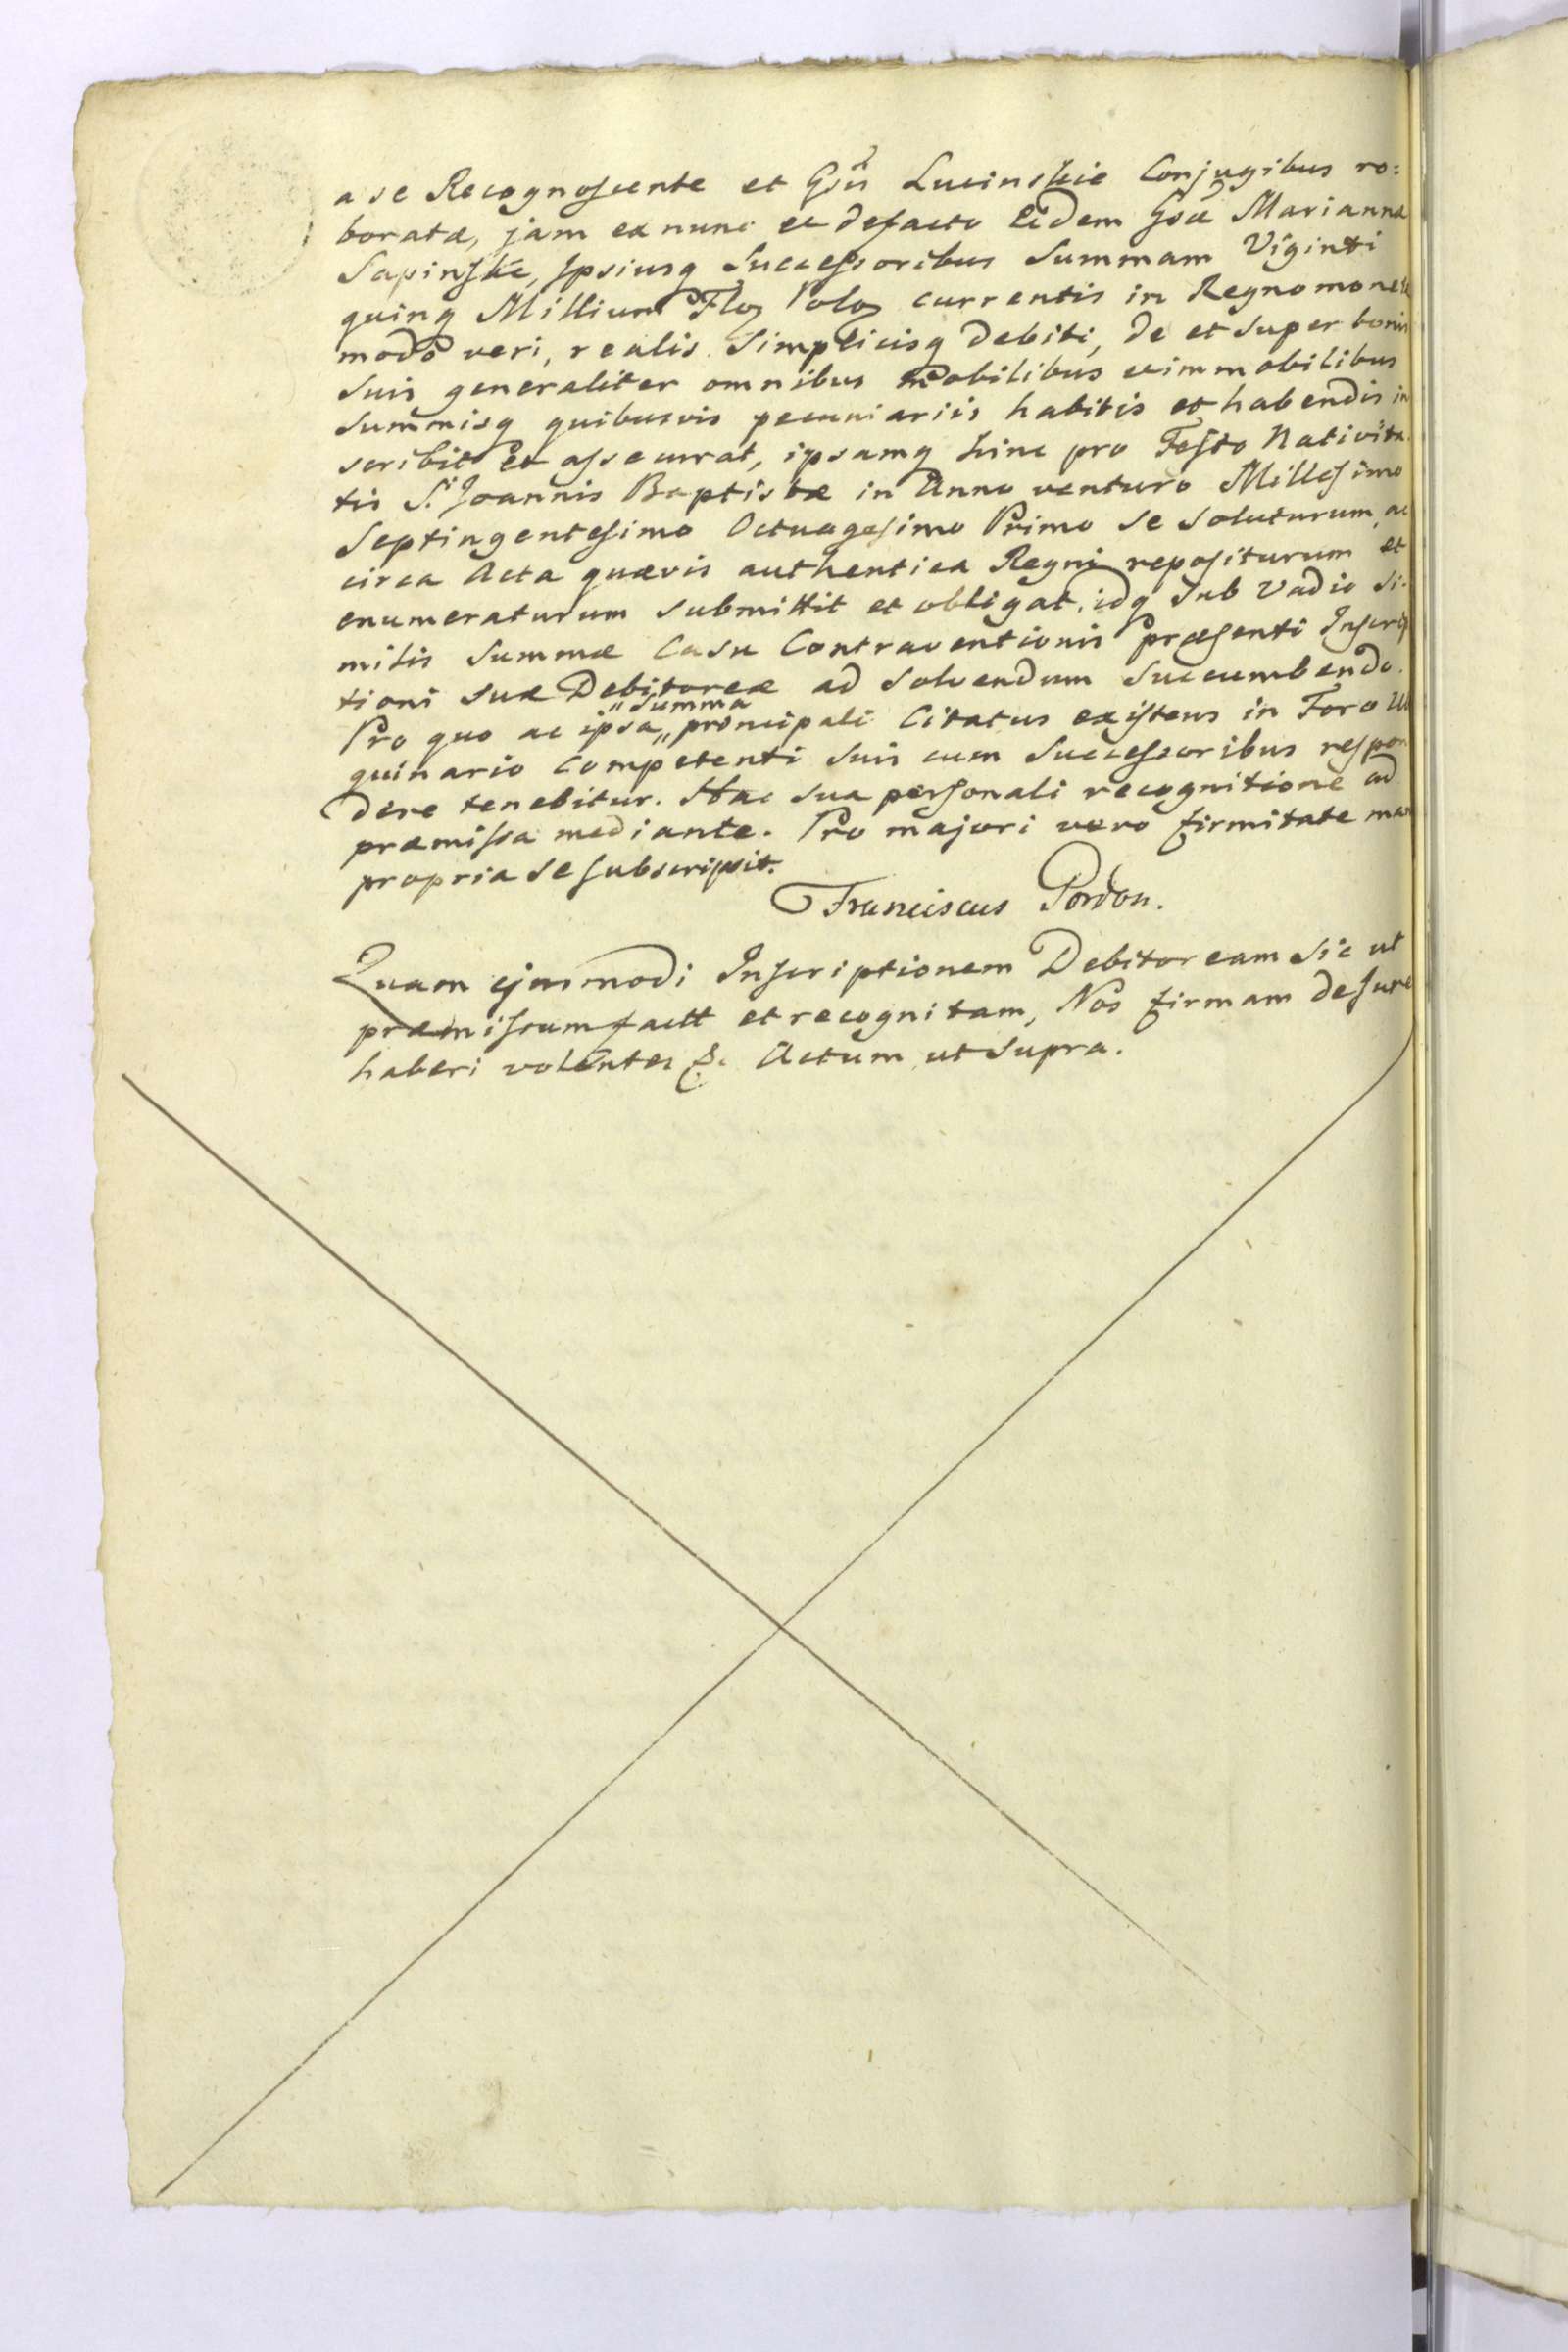 a se Recognoscente et Gsū Lucinskie Conjugibus ro:
boratæ, jam ex nunc et defacto Eidem Gsæ Marianna
Sapinskie, Ipsiusq Successoribus Summam Viginti
quinq Millium Flor Polor currentis in Regno moneta
modo veri, realis Simplicisq Debiti, de et super bonis
suis generaliter omnibus mobilibus et immobilibus
Summisq quibusvis pecuniariis habitis et habendis in
scribit et assecurat, ipsamq hinc pro Festo Nativita
tis S. Joannis Baptistæ in Anno venturo Millesimo
Septingentesimo Octuagesimo Primo se soluturum, ac
circa Acta quævis authentica Regni repositurum et
enumeraturum submittit et obligat, idq sub Vadio si:
milis Summæ Casu Contraventionis præsenti Inscrip
tioni suæ Debitoreæ ad solvendum succumbendo.
Pro quo ac ipsa „Summa„ principali Citatus existens in Foro
quinario competenti suis cum Successoribus respon
dere tenebitur. Hac sua personali recognitione ad
præmissa mediante. Pro majori vero firmitate man
propria se subscripsit.
Franciscus Pordon.
Quam ejusmodi Inscriptionem Debitoream sic ut
præmissum factt et recognitam, Nos firmam de Jure
haberi volentes &c Actum ut Supra.